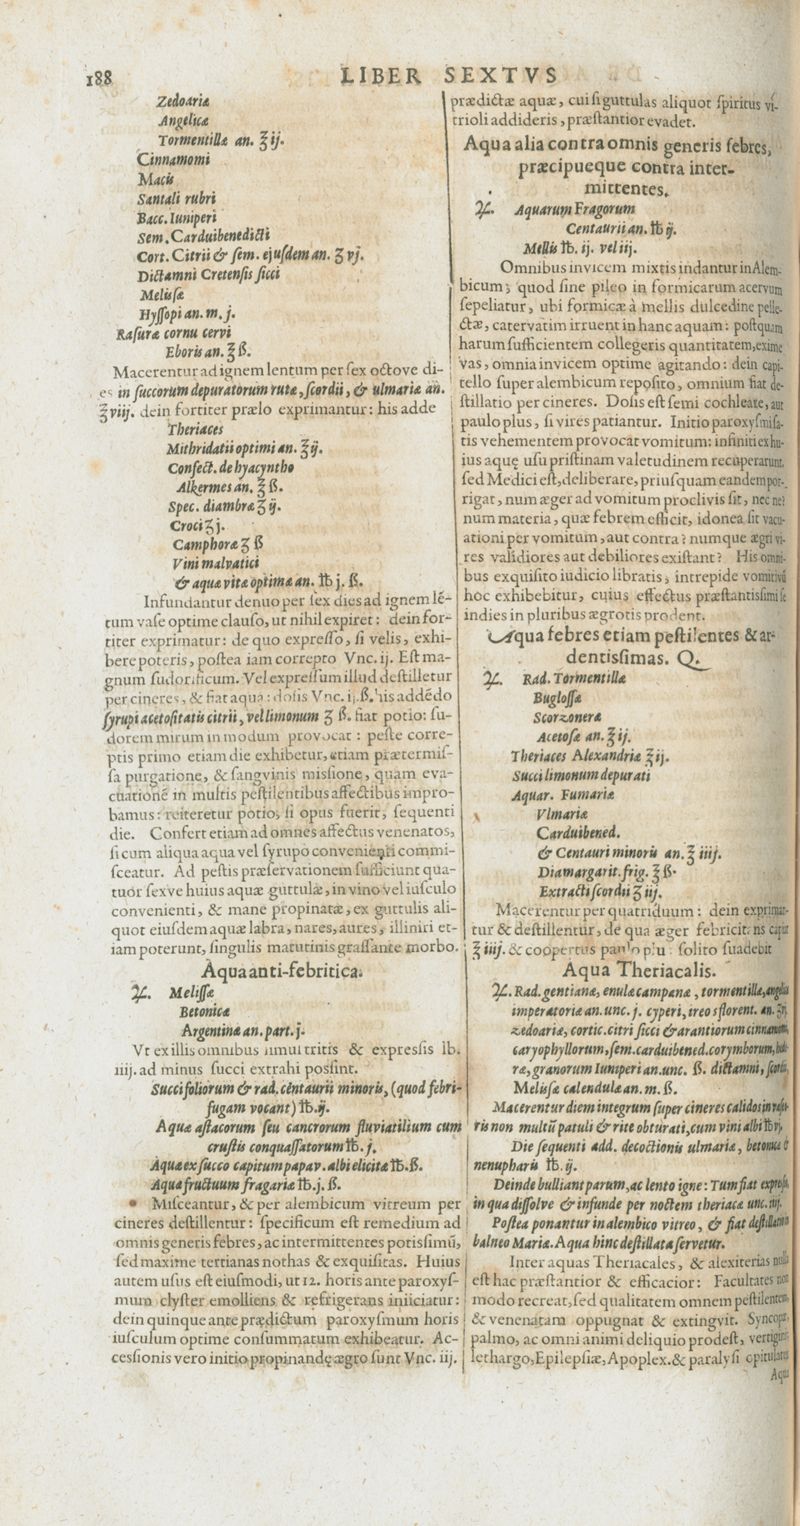 188 LIBER SEXTVS
Zedoariæ
Angelicæ
Tormentillæ an. ℥ij.
Cinnamomi
Macis
Santali rubri
Bacc. Iuniperi
Sem. Carduibenedicti
Cort. Citrii & ſem. ejuſdem an. ʒ vj.
Dictamni Cretenſis ſicci
Meliſſæ
Hyſſopi an. m. j.
Raſuræ cornu cervi
Eboris an. ℥ ß.
Macerentur ad ignem lentum per ſex octove di-
es in ſuccorum depuratorum rutæ, ſcordii, & ulmariæ an.
℥viij. dein fortiter prælo exprimantur: his adde
Theriaces
Mithridatii optimi an. ℥ij.
Confect. de hyacyntho
Alkermes an. ℥ ß.
Spec. diambræ ʒ ij.
Croci ʒ j.
Camphoræ ʒ ß
Vini malvatici
& aquæ vitæ optimæ an. ℔ j. ß.
Infundantur denuo per ſex dies ad ignem lē-
tum vaſe optime clauſo, ut nihil expiret: dein for-
titer exprimatur: de quo expreſſo, ſi velis, exhi-
bere poteris, poſtea iam correpto Vnc. ij. Eſt ma-
gnum ſudorificum. Vel expreſſum illud deſtilletur
per cineres, & fiat aqua: doſis Vnc. ij. ß. his addēdo
ſyrupi acetoſitatis citrii, vel limonum ʒ ß. fiat potio: ſu-
dorem mirum in modum provocat: peſte corre-
ptis primo etiam die exhibetur, etiam prætermiſ-
ſa purgatione, & ſangvinis misſione, quam eva-
cuationē in multis peſtilentibus affectibus impro-
bamus: reiteretur potio, ſi opus fuerit, ſequenti
die. Confert etiam ad omnes affectus venenatos,
ſi cum aliqua aqua vel ſyrupo convenienti commi-
ſceatur. Ad peſtis præſervationem ſufficiunt qua-
tuor ſexve huius aquæ guttulæ, in vino vel iuſculo
convenienti, & mane propinatæ, ex guttulis ali-
quot eiuſdem aquæ labra, nares, aures, illiniri et-
iam poterunt, ſingulis matutinis graſſante morbo.
Aqua anti-febritica.
♃. Meliſſæ
Betonicæ
Argentinæ an. part. j.
Vt ex illis omnibus ſimul tritis & expresſis lb.
iiij. ad minus ſucci extrahi posſint.
Succi foliorum & rad. cētaurii minoris, (quod febri-
fugam vocant) ℔. ij.
Aquæ aſtacorum ſeu cancrorum fluviatilium cum
cruſtis conquaſſatorum ℔. j.
Aquæ ex ſucco capitum papav. albi elicitæ ℔. ß.
Aquæ fructuum fragariæ ℔. j. ß.
Miſceantur, & per alembicum vitreum per
cineres deſtillentur: ſpecificum eſt remedium ad
omnis generis febres, ac intermittentes potisſimū,
ſed maxime tertianas nothas & exquiſitas. Huius
autem uſus eſt eiuſmodi, ut 12. horis ante paroxyſ-
mum clyſter emolliens & refrigerans iniiciatur:
dein quinque ante prædictum paroxyſmum horis
iuſculum optime conſummatum exhibeatur. Ac-
cesſionis vero initio propinandę ægro ſunt Vnc. iij.
prædictæ aquæ, cui ſi guttulas aliquot ſpiritus vi-
trioli addideris, præſtantior evadet.
Aqua alia contra omnis generis febres,
præcipueque contra inter-
mittentes.
♃. Aquarum Fragorum
Centaurii an. ℔ ij.
Mellis ℔. ij. vel iij.
Omnibus invicem mixtis indantur in Alem-
bicum; quod ſine pileo in formicarum acervum
ſepeliatur, ubi formicæ à mellis dulcedine pelle-
ctæ, catervatim irruent in hanc aquam: poſtquam
harum ſufficientem collegeris quantitatem, exime
vas, omnia invicem optime agitando: dein capi-
tello ſuper alembicum repoſito, omnium fiat de-
ſtillatio per cineres. Doſis eſt ſemi cochleare, aut
paulo plus, ſi vires patiantur. Initio paroxyſmi ſa-
tis vehementem provocat vomitum: infiniti ex hu-
ius aquę uſu priſtinam valetudinem recuperarunt.
ſed Medici eſt, deliberare, priuſquam eandem por-
rigat, num æger ad vomitum proclivis ſit, nec ne?
num materia, quæ febrem efficit, idonea ſit vacu-
ationi per vomitum, aut contra? numque ægri vi-
res validiores aut debiliores exiſtant? His omni-
bus exquiſito iudicio libratis, intrepide vomitivū
hoc exhibebitur, cuius effectus præſtantisſimi ſe
indies in pluribus ægrotis prodent.
Aqua febres etiam peſtilentes & ar-
dentisſimas. Q.
♃. Rad. Tormentillæ
Bugloſſæ
Scorzoneræ
Acetoſæ an. ℥ ij.
Theriaces Alexandriæ ℥ ij.
Succi limonum depurati
Aquar. Fumariæ
Vlmariæ
Carduibened.
& Centauri minoris an. ℥ iiij.
Diamargarit. frig. ℥ ß.
Extracti ſcordii ʒ iij.
Macerentur per quatriduum: dein expriman-
tur & deſtillentur, de qua æger febricitans capiat
℥ iiij. & coopertus paulo plus ſolito ſuadebit
Aqua Theriacalis.
♃. Rad. gentianæ, enulæ campanæ, tormentillæ, angelicæ
imperatoriæ an. unc. j. cyperi, ireos florent. an.
zedoariæ, cortic. citri ſicci & arantiorum cinnamomi,
caryophyllorum, ſem. carduibened. corymborum,
ræ, granorum Iuniperi an. unc. ß. dictamni, ſcordii,
Meliſſæ calendulæ an. m. ß.
Macerentur diem integrum ſuper cineres calidos in vaſe
ris non multū patuli & rite obturati, cum vini albi ℔ vj.
Die ſequenti add. decoctionis ulmariæ, betonicæ &
nenupharis ℔. ij.
Deinde bulliant parum, ac lento igne: Tum fiat expreſſio,
in qua diſſolve & infunde per noctem theriacæ unc. iiij.
Poſtea ponantur in alembico vitreo, & fiat deſtillatio in
balneo Mariæ. Aqua hinc deſtillata ſervetur.
Inter aquas Theriacales, & alexiterias nulla
eſt hac præſtantior & efficacior: Facultates non
modo recreat, ſed qualitatem omnem peſtilentem,
& venenatam oppugnat & extingvit. Syncopæ,
palmo, ac omni animi deliquio prodeſt, vertigini,
lethargo, Epilepſiæ, Apoplex. & paralyſi opitulatur
Aqua